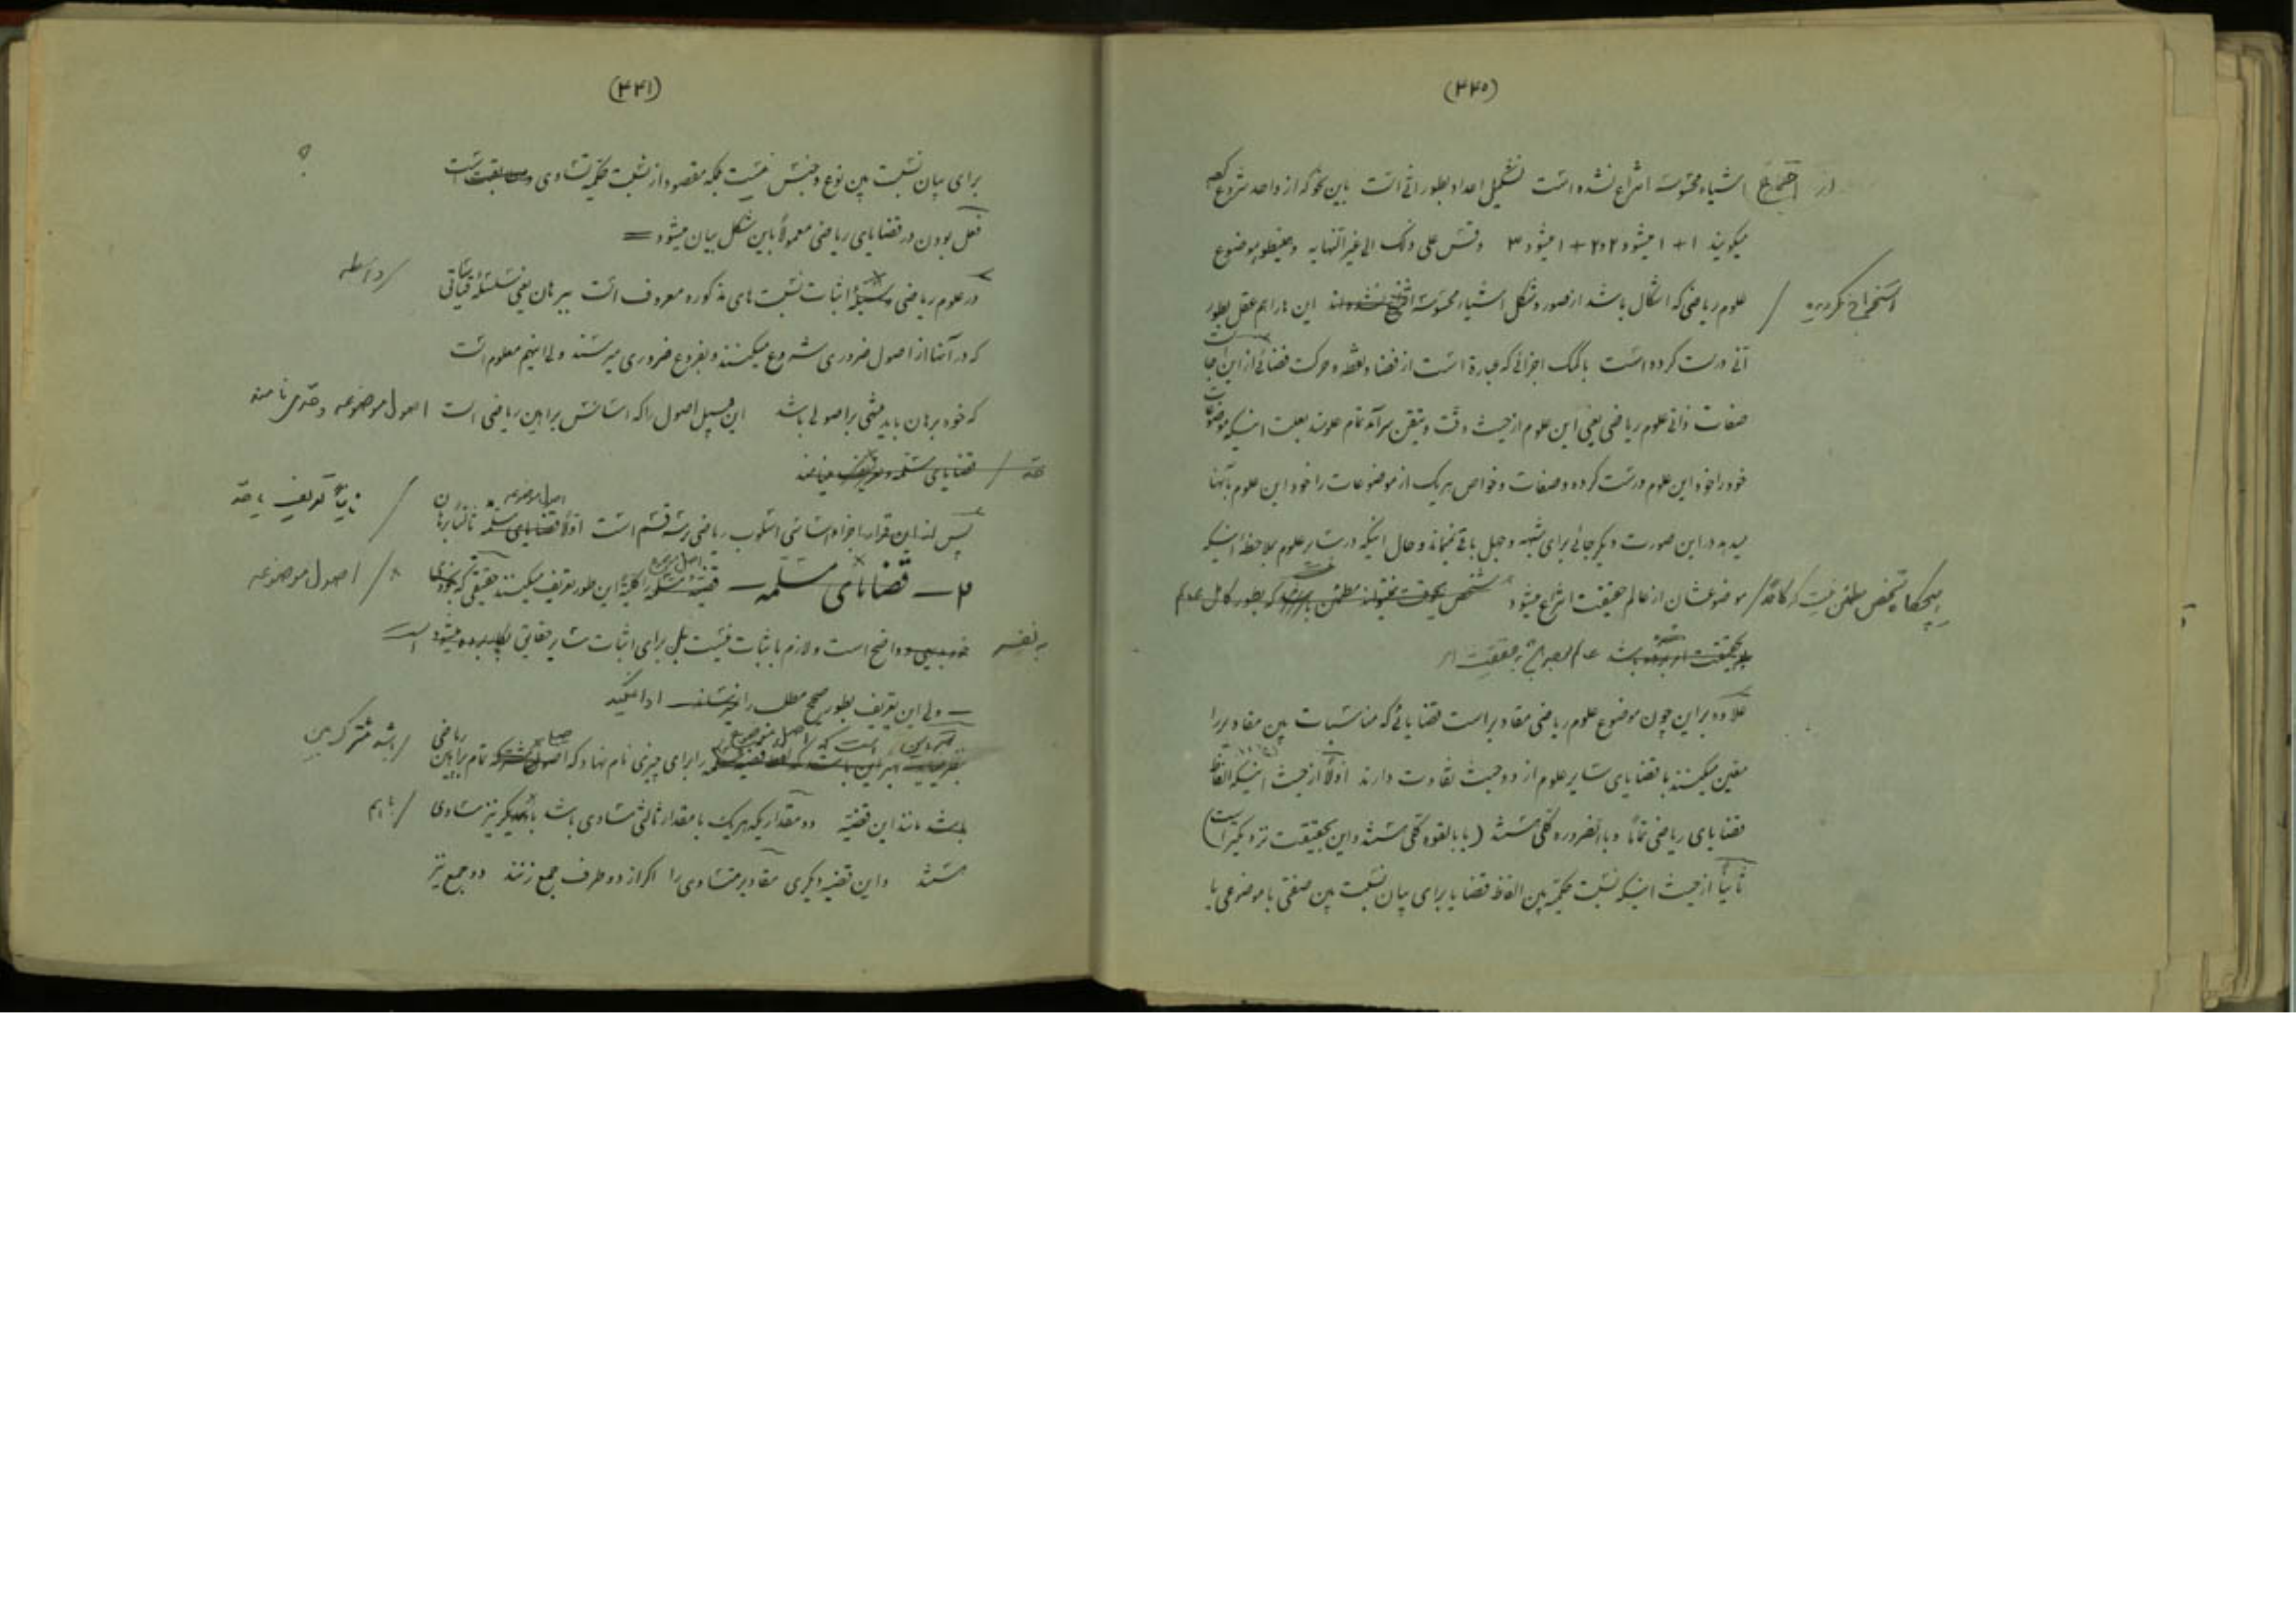 (۳۴۰)
از اجتماع اشیاء محسوسه انتزاع نشده است تشکیل اعداد بطور آنی است باین نحو که از واحد شروع کرده
میگویند ۱ + ۱ میشود ۲ و ۲ + ۱ میشود ۳ وقس علی ذلک الی غیر النهایه و همینطور موضوع
علوم ریاضی که اشکال باشد از صور و شکل اشیاء محسوسه انتزاع نشده‌اند این ها را هم عقل بطور
استخراج نکردیده
آنی درست کرده است با کمک اجزائی که عبارة است از فضا و نقطه و حرکت فضائی از این جا
صفات ذاتی علوم ریاضی یعنی این علوم از حیث دقت و تیقن سرآمد تمام علومند بعلت اینکه موضوعات
خود را خود این علوم درست کرده و صفات و خواص هر یک از موضوعات را خود این علوم بآنها
میدهد در این صورت دیگر جائی برای شبهه و جهل باقی نمیماند و حال اینکه در سایر علوم بملاحظه اینکه
موضوعشان از عالم حقیقت انتزاع میشود شخص هیچوقت نمیتواند مطمئن باشد که بطور کامل علم
هیچگاه شخص مطمئن نیست که کاملا
علاوه براین چون موضوع علوم ریاضی مقادیر است قضایائی که مناسبات بین مقادیر را
معین میکنند با قضایای سایر علوم از دو حیث تفاوت دارند اولاً از حیث اینکه الفاظ
قضایای ریاضی تماماً و بالضروره کلی هستند (یا بالقوه کلی هستند و این بحقیقت نزدیکتر است)
ثانیاً از حیث اینکه نسبت حکمیه بین الفاظ قضایا برای بیان نسبت بین صفتی با موضوعی یا
(۳۴۱)
برای بیان نسبت بین نوع و جنس نیست بلکه مقصود از نسبت حکمیه تساوی و مطابقت است
؟
فعل بودن در قضایای ریاضی معمولاً باین شکل بیان میشود =
در علوم ریاضی وسیله اثبات نسبت های مذکوره معروف است ببرهان یعنی سلسله قیاساتی
واسطه
که در آنها از اصول ضروری شروع میکنند و بفروع ضروری میرسند ولی اینهم معلوم است
که خود برهان باید مبتنی بر اصولی باشد این قبیل اصول را که اساس براهین ریاضی است اصول موضوعه و حدود نامند
قضایای مسلمه و تعریف مینامند
پس از این قرار اجزاء اساسی اسلوب ریاضی بر سه قسم است اولاً قضایای مسلمه ثالثاً برهان
اصول موضوعه
ثانیاً تعریف یا حد
۲ — قضایای مسلمه — قضیه مسلمه را کلیةً این طور تعریف میکنند حقیقتی که بخودی
اصول موضوعه
خود بدیهی و واضح است و لازم باثبات نیست بلکه برای اثبات سایر حقایق بکار برده میشود
بنفسه
— ولی این تعریف بطور صحیح مطلب را ادا نمیکند
بهتر این است که لفظ قضیه مسلمه را برای چیزی نام نهاد که اصول مشترکه تمام براهین ریاضی
باشد مانند این قضیه دو مقداریکه هریک با مقدار ثالثی مساوی باشد با یکدیگر نیز مساوی
باهم
هستند و این قضیه دیگری مقادیر متساوی را اگر از دو طرف جمع زنند دو جمع نیز